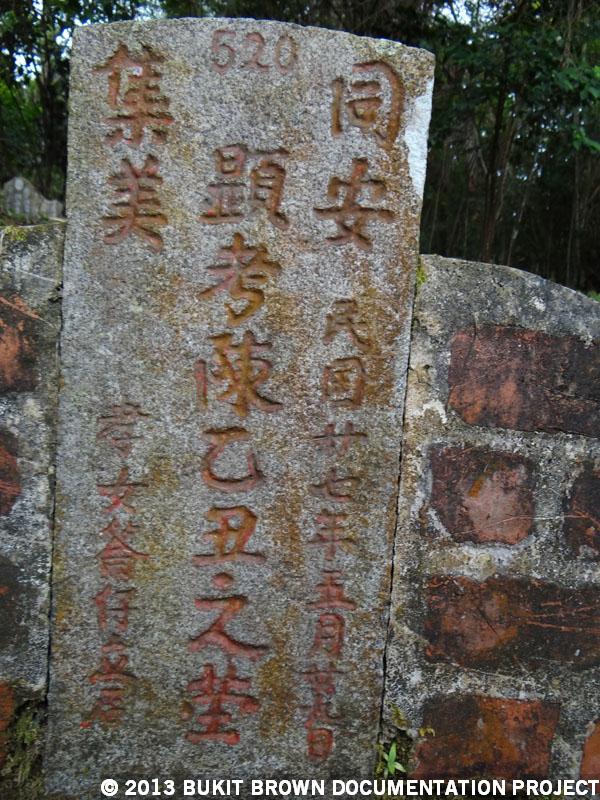 520
同安 民国廿七年五月廿九日
顕考陳乙丑之塋
集美
孝女 仔立石
© 2013 BUKIT BROWN DOCUMENTATION PROJECT